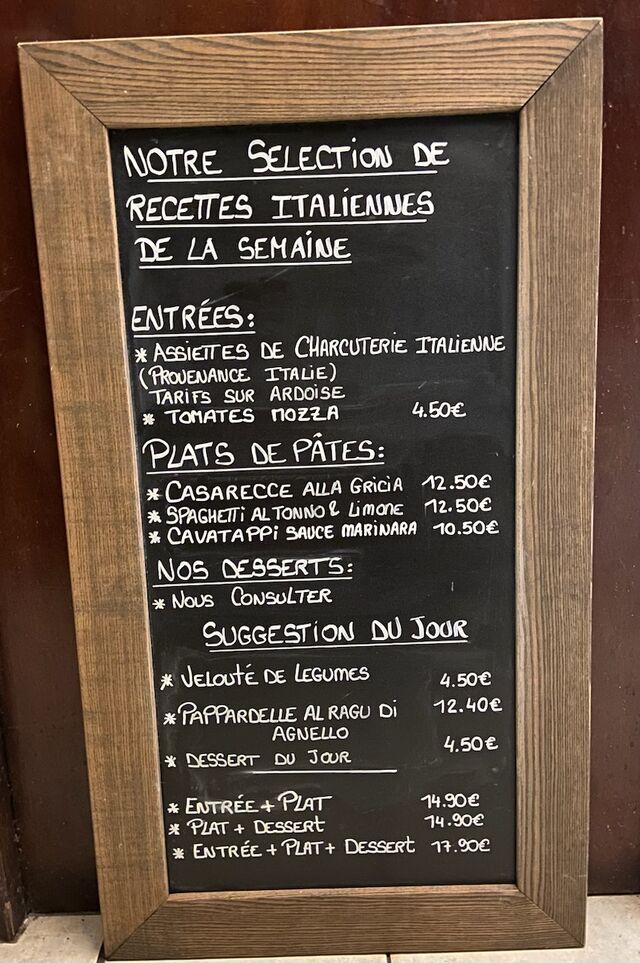 NOTRE SELECTION DE
RECETTES ITALIENNES
DE LA SEMAINE
ENTRÉES:
* ASSIETTES DE CHARCUTERIE ITALIENNE
(PROVENANCE ITALIE)
TARIFS SUR ARDOISE
* TOMATES MOZZA 4.50€
PLATS DE PÂTES:
* CASARECCE ALLA GRICIA 12.50€
* SPAGHETTI AL TONNO & LIMONE 12.50€
* CAVATAPPI SAUCE MARINARA 10.50€
NOS DESSERTS:
* NOUS CONSULTER
SUGGESTION DU JOUR
* VELOUTÉ DE LEGUMES 4.50€
* PAPPARDELLE AL RAGU DI 12.40€
AGNELLO
* DESSERT DU JOUR 4.50€
* ENTRÉE + PLAT 14.90€
* PLAT + DESSERT 14.90€
* ENTRÉE + PLAT + DESSERT 17.90€